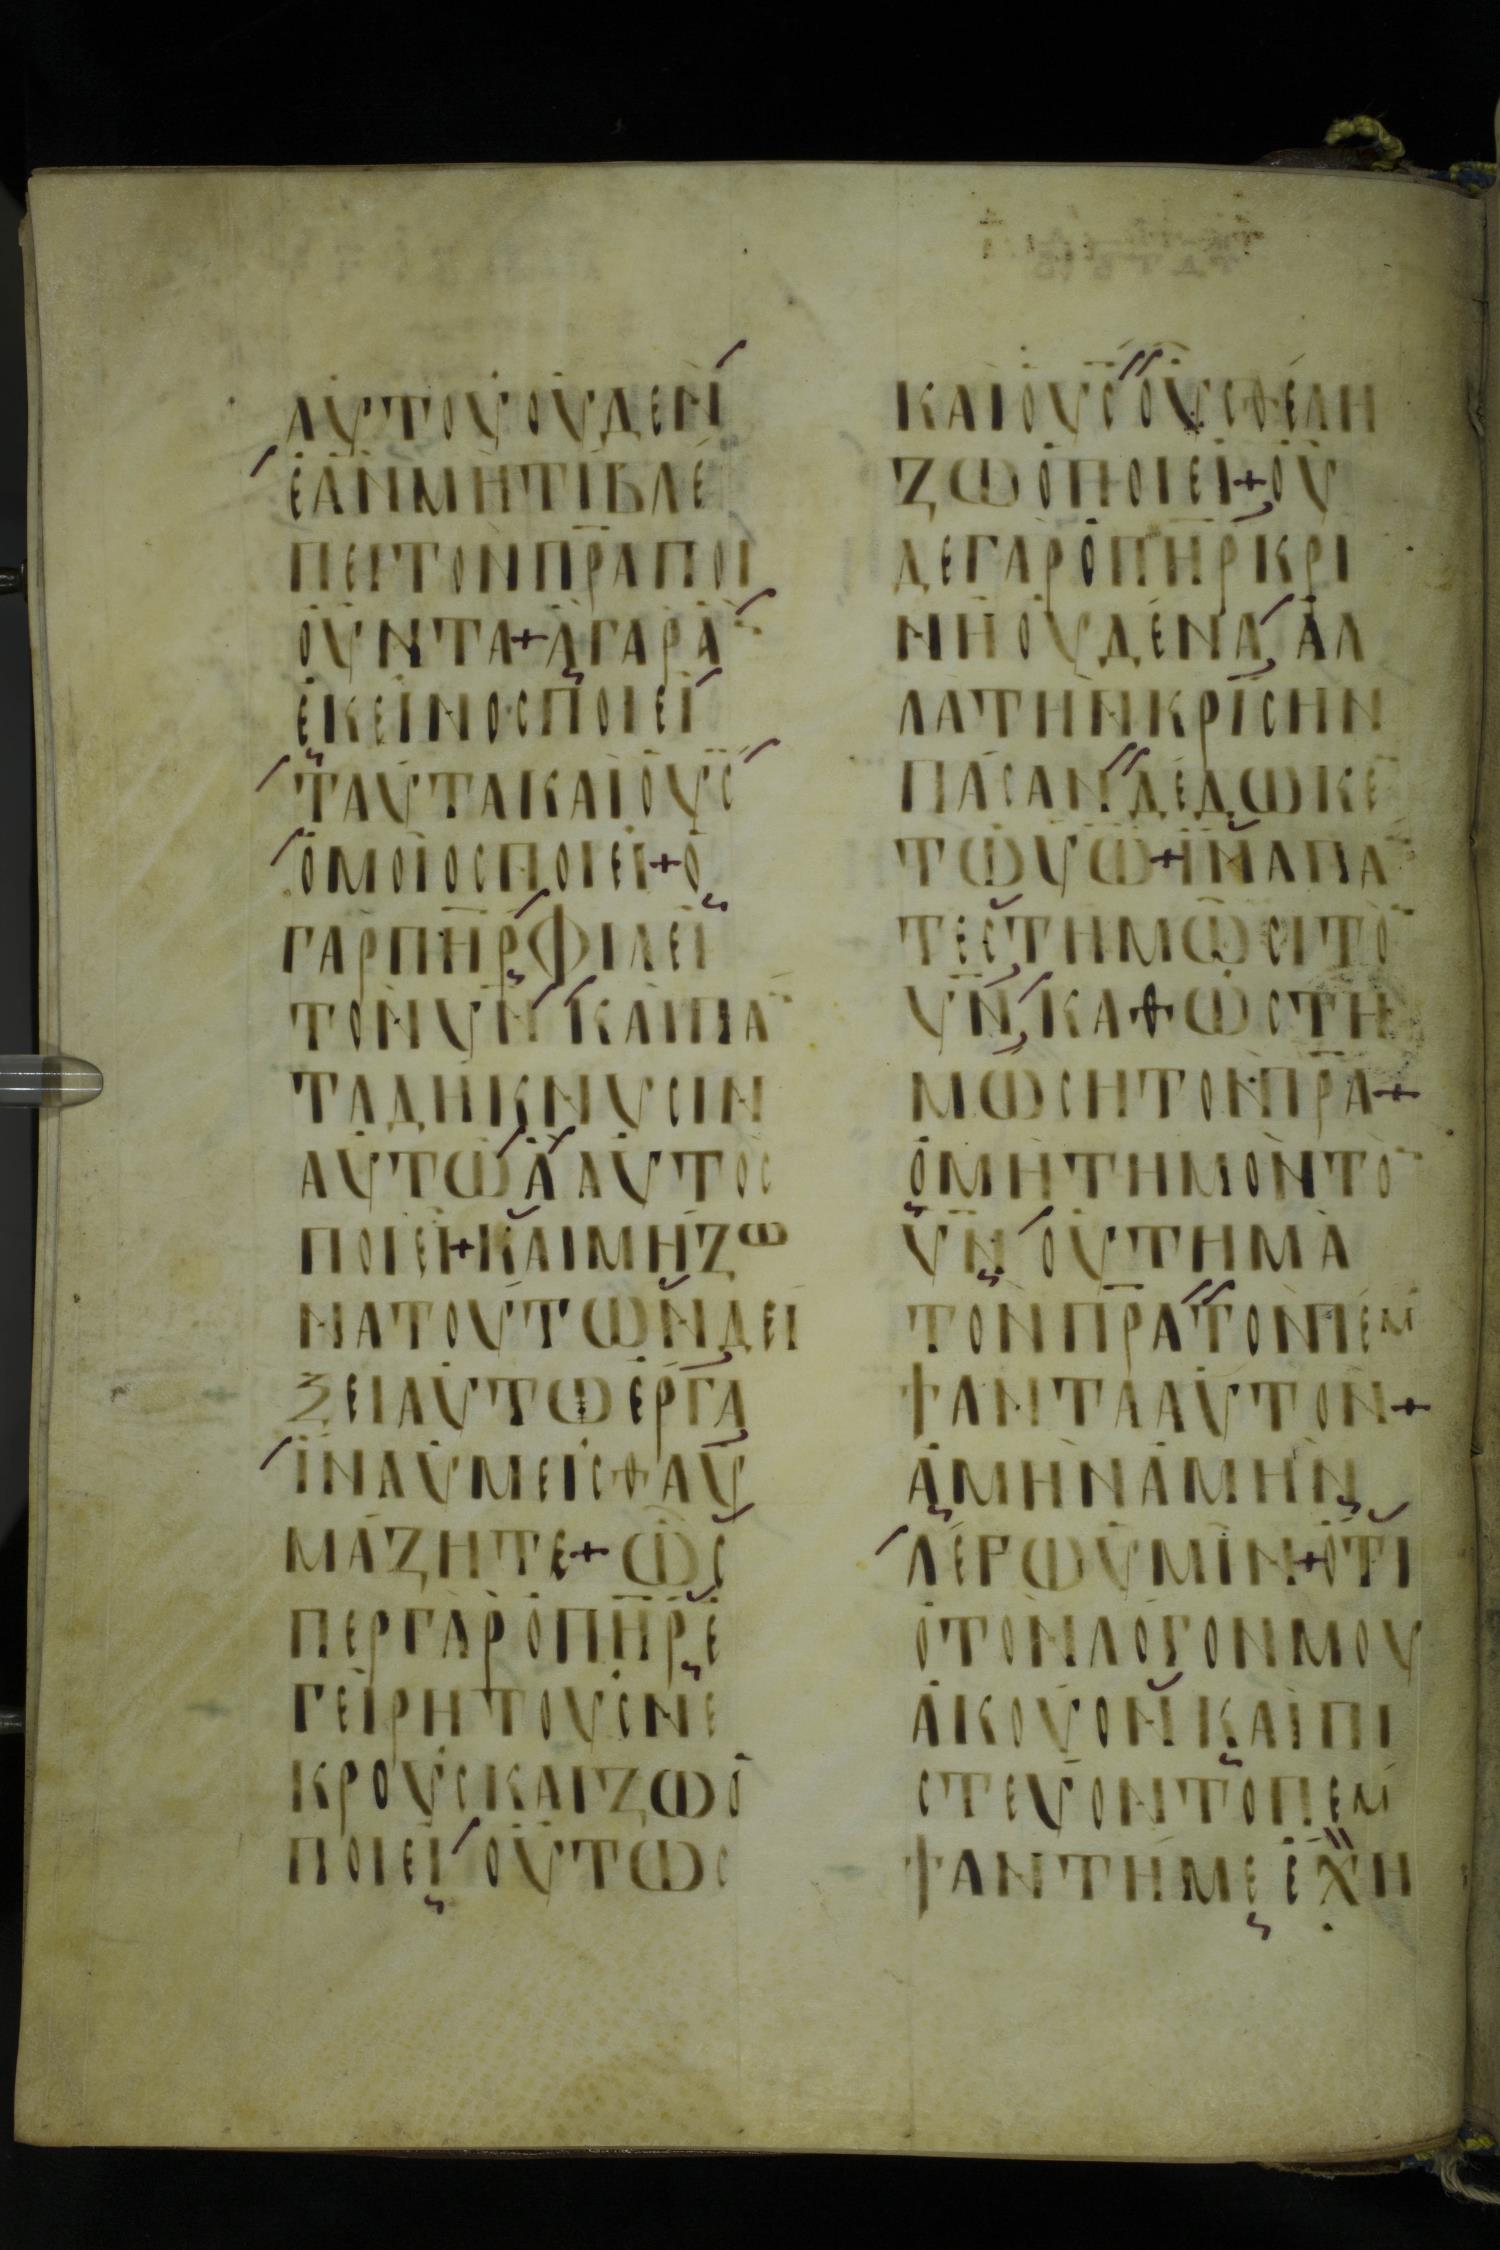 ΑΥΤΟΥΟΥΔΕΝ
ΕΑΝΜΗΤΙΒΛΕ
ΠΕΙΤΟΝΠΡΑΠΟΙ
ΟΥΝΤΑ+ΑΓΑΡΑ
ΕΚΕΙΝΟΣΠΟΙΕΙ
ΤΑΥΤΑΚΑΙΟΥΣ
ΟΜΟΙΟΣΠΟΙΕΙ+Ο
ΓΑΡΠΗΡΦΙΛΕΙ
ΤΟΝΥΝΚΑΙΠΑ
ΤΑΔΗΚΝΥΣΙΝ
ΑΥΤΩΑΑΥΤΟΣ
ΠΟΙΕΙ+ΚΑΙΜΗΖΩ
ΝΑΤΟΥΤΩΝΔΕΙ
ΞΕΙΑΥΤΩΕΡΓΑ
ΙΝΑΥΜΕΙΣΘΑΥ
ΜΑΖΗΤΕ+ΩΣ
ΠΕΡΓΑΡΟΠΗΡΕ
ΓΕΙΡΗΤΟΥΣΝΕ
ΚΡΟΥΣΚΑΙΖΩΟ
ΠΟΙΕΙΟΥΤΩΣ
ΚΑΙΟΥΣΟΥΣΘΕΛΗ
ΖΩΟΠΟΙΕΙ+ΟΥ
ΔΕΓΑΡΟΠΗΡΚΡΙ
ΝΗΟΥΔΕΝΑΑΛ
ΛΑΤΗΝΚΡΙΣΗΝ
ΠΑΣΑΝΔΕΔΩΚΕ
ΤΩΥΩ+ΙΝΑΠΑ
ΤΕΣΤΗΜΩΣΙΤΟ
ΥΝΚΑΘΩΣΤΗ
ΜΩΣΗΤΟΝΠΡΑ+
ΟΜΗΤΗΜΟΝΤΟ
ΥΝΟΥΤΗΜΑ
ΤΟΝΠΡΑΤΟΝΠΕΜ
ΨΑΝΤΑΑΥΤΟΝ+
ΑΜΗΝΑΜΗΝ
ΛΕΓΩΥΜΙΝ+ΟΤΙ
ΟΤΟΝΛΟΓΟΝΜΟΥ
ΑΚΟΥΟΝΚΑΙΠΙ
ΣΤΕΥΟΝΤΟΠΕΜ
ΨΑΝΤΗΜΕΕΧΗ